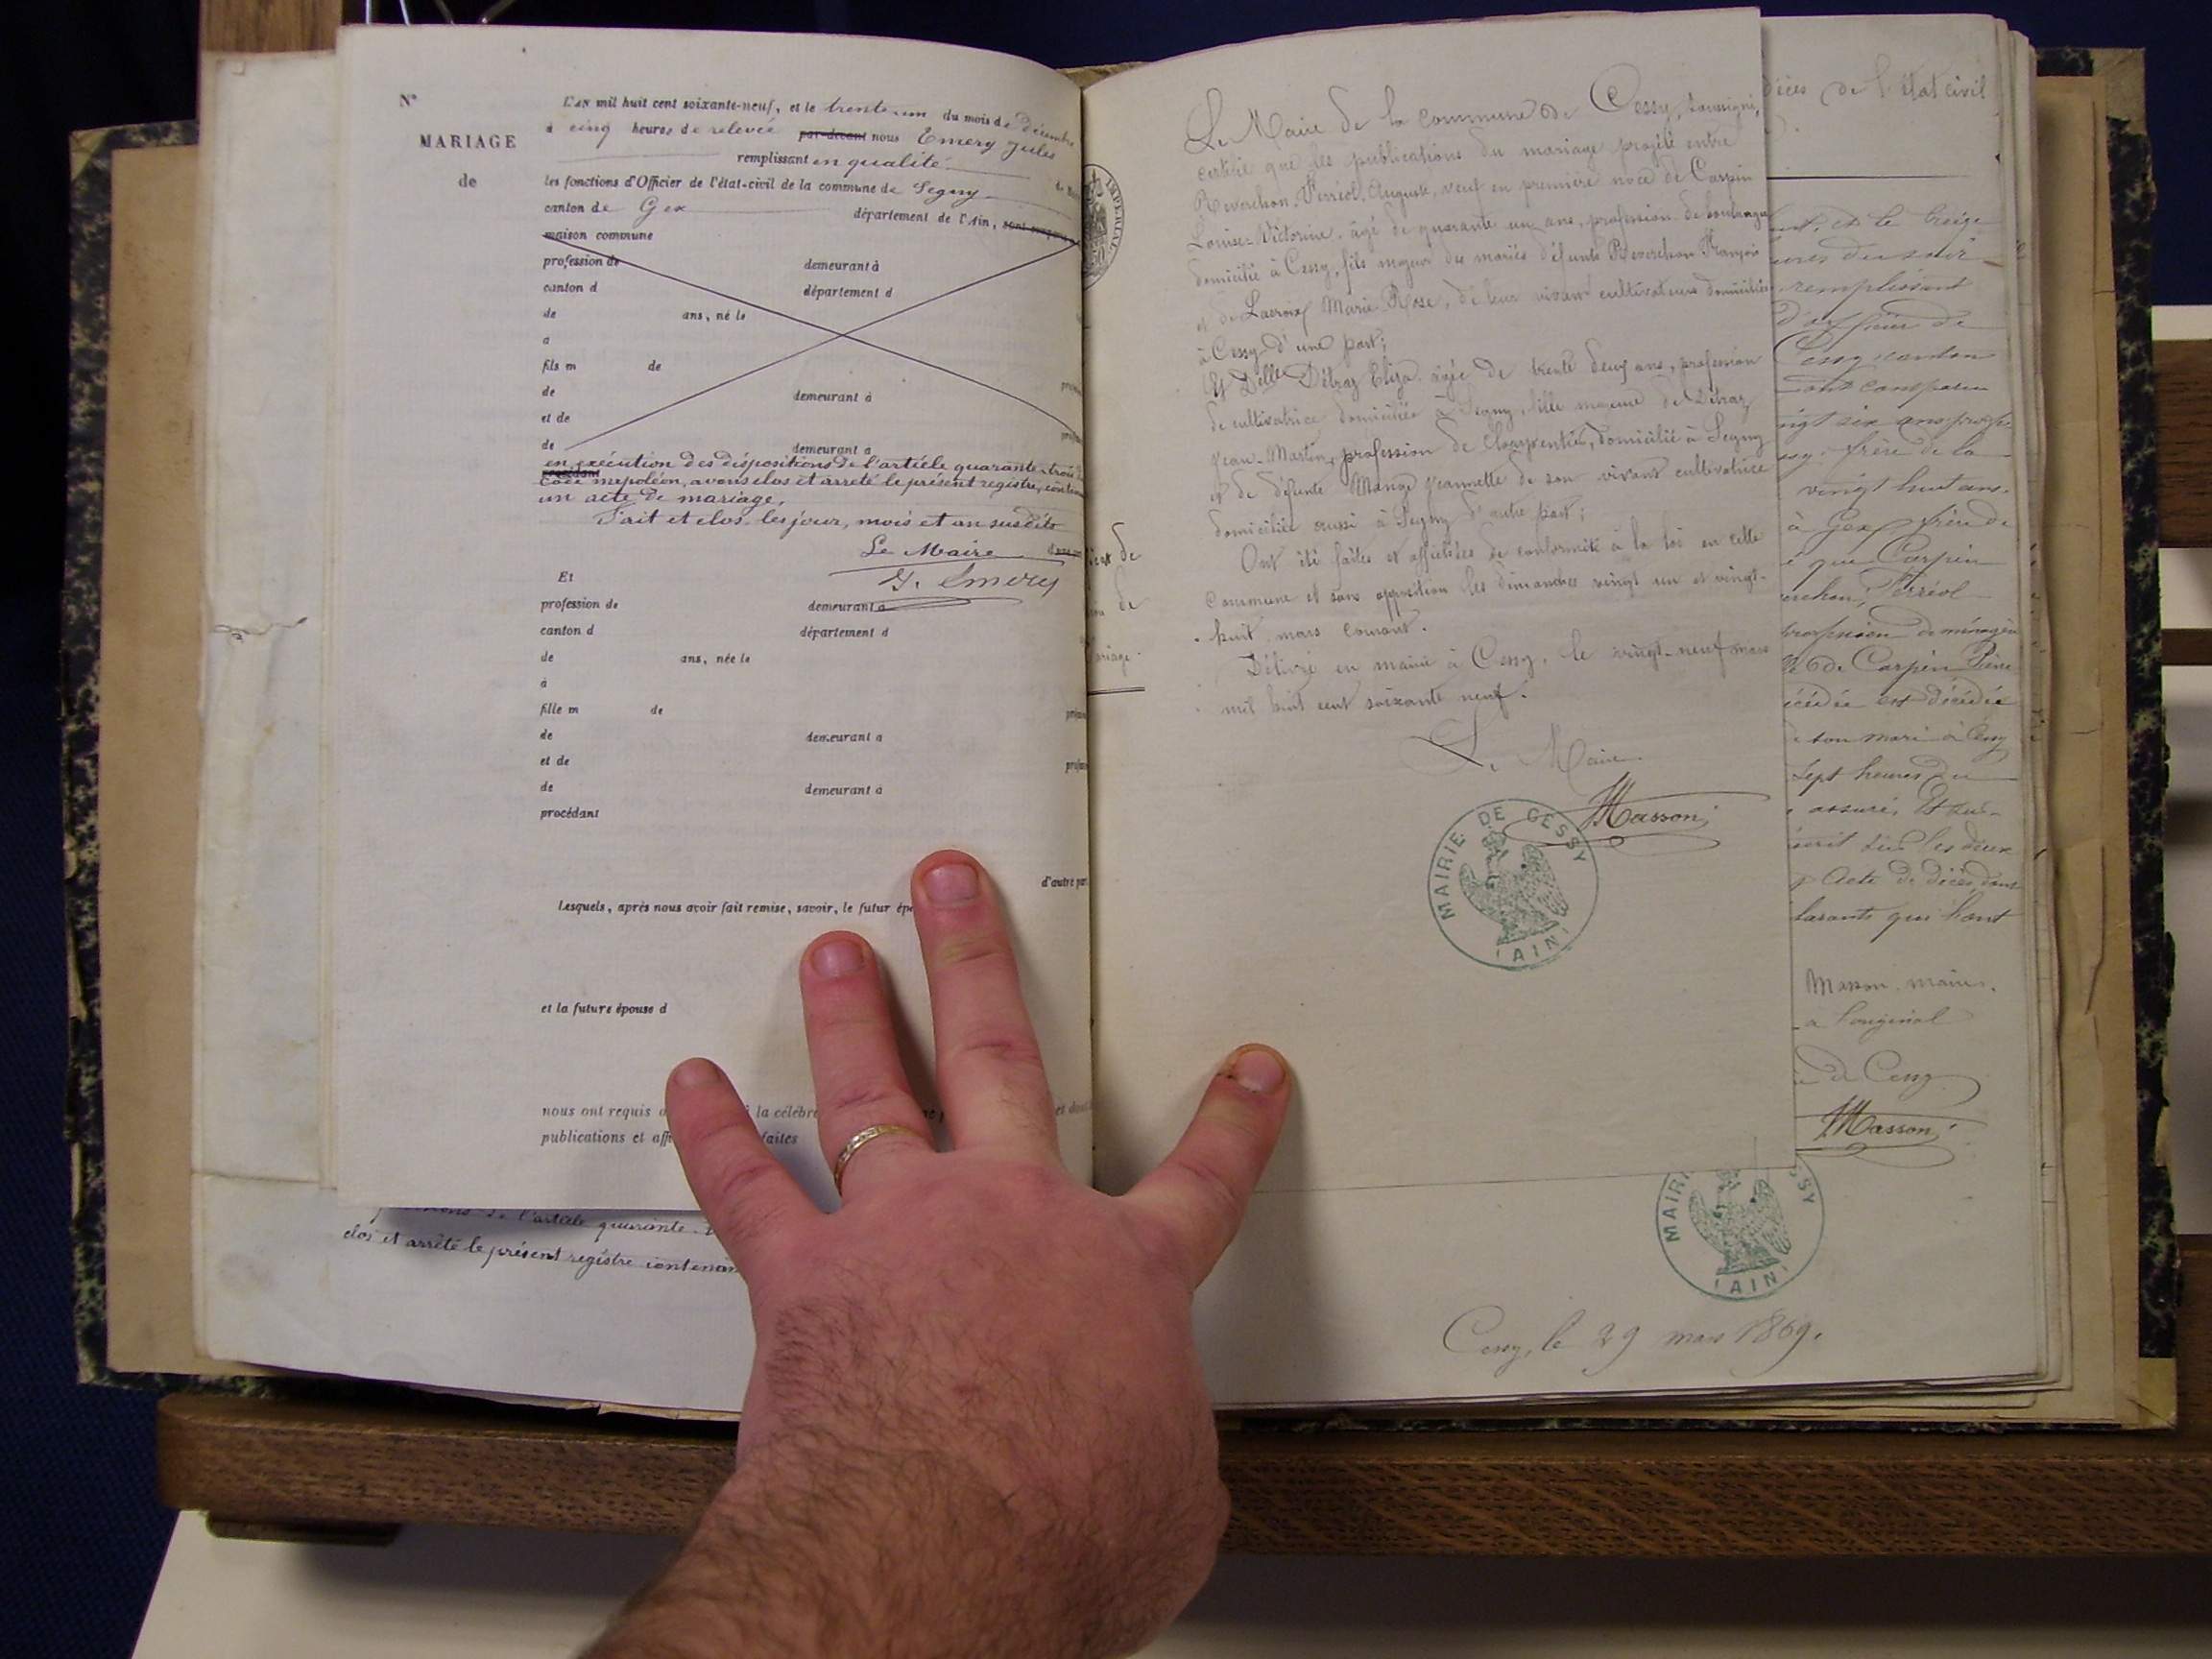 N°
MARIAGE
de
L'AN mil huit cent soixante-neuf, et le trente un du mois de Décembre
à cinq heures de relevée par-devant nous Emery Jules
remplissant en qualité
les fonctions d'Officier de l'état-civil de la commune de Segny
canton de Gex département de l'Ain,
maison commune
profession de demeurant à
canton d département d
de ans, né le
a
fils m de
de demeurant à
et de
de demeurant a
en exécution des dispositions de l'article quarante-trois
procédant
Code Napoléon, avons clos et arrêté le présent registre, contenant
un acte de mariage,
Fait et clos, les jour, mois et an susdits
Le Maire
J. Emery
Et
profession de demeurant a
canton d département d
de ans, née le
à
fille m de
de demeurant a
et de
de demeurant a
procédant
d'autre par
Lesquels, après nous avoir fait remise, savoir, le futur ép
et la future épouse d
nous ont requis la célébr
publications et aff faites
de l'article quarante
clos et arrêté le présent registre contenan
IMPERIAL
Le Maire de la commune de Cessy, soussigné,
certifie que les publications du mariage projeté entre
Reverchon Ferréol, Auguste, veuf en première noce de Carpin
Louise-Victorine, âgé de quarante un ans, profession de boulanger
domicilié à Cessy, fils majeur des mariés défunts Reverchon François
et de Lacroix Marie Rose, de leur vivant cultivateurs domiciliés
à Cessy d'une part;
Et Delle Détraz Eliza, âgée de trente deux ans, profession
de cultivatrice domiciliée à Segny, fille majeure de Détraz
Jean-Martin, profession de Charpentier, domicilié à Segny
et de défunte Mange Jeannette de son vivant cultivatrice
domiciliée aussi à Segny d'autre part;
Ont été faites et affichées de conformité à la loi en cette
commune et sans opposition les dimanches vingt un et vingt-
huit mars courant.
Délivré en mairie à Cessy, le vingt-neuf mars
mil huit cent soixante neuf.
Le Maire
Masson
MAIRIE DE CESSY
(AIN)
décès de l'état civil
et le treize
heures du soir
remplissant
d'officier de
Cessy canton
sont comparus
vingt six ans
frère de la
vingt huit ans
à Gex frère de
que Carpin
Ferréol
profession de ménagère
de Carpin Pierre
décédée est décédée
de son mari à Cessy
sept heures du
assuré. Et
les deux
acte de décès dont
qui l'ont
Masson, maire.
a l'original
de Cessy
Masson
MAIRI SSY
(AIN)
Cessy, le 29 mars 1869.